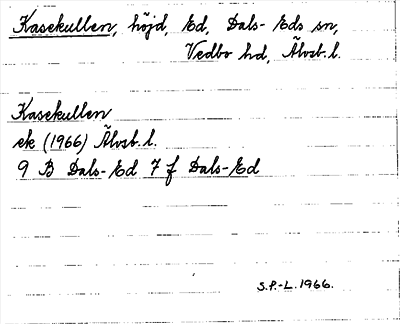 Kasekullen, höjd, Ed, Dals-Eds sn,
Vedbo hd, Älvsb. l.
Kasekullen
ek (1966) Älvsb. l.
9 B Dals-Ed 7 f Dals-Ed
S.P.-L. 1966.